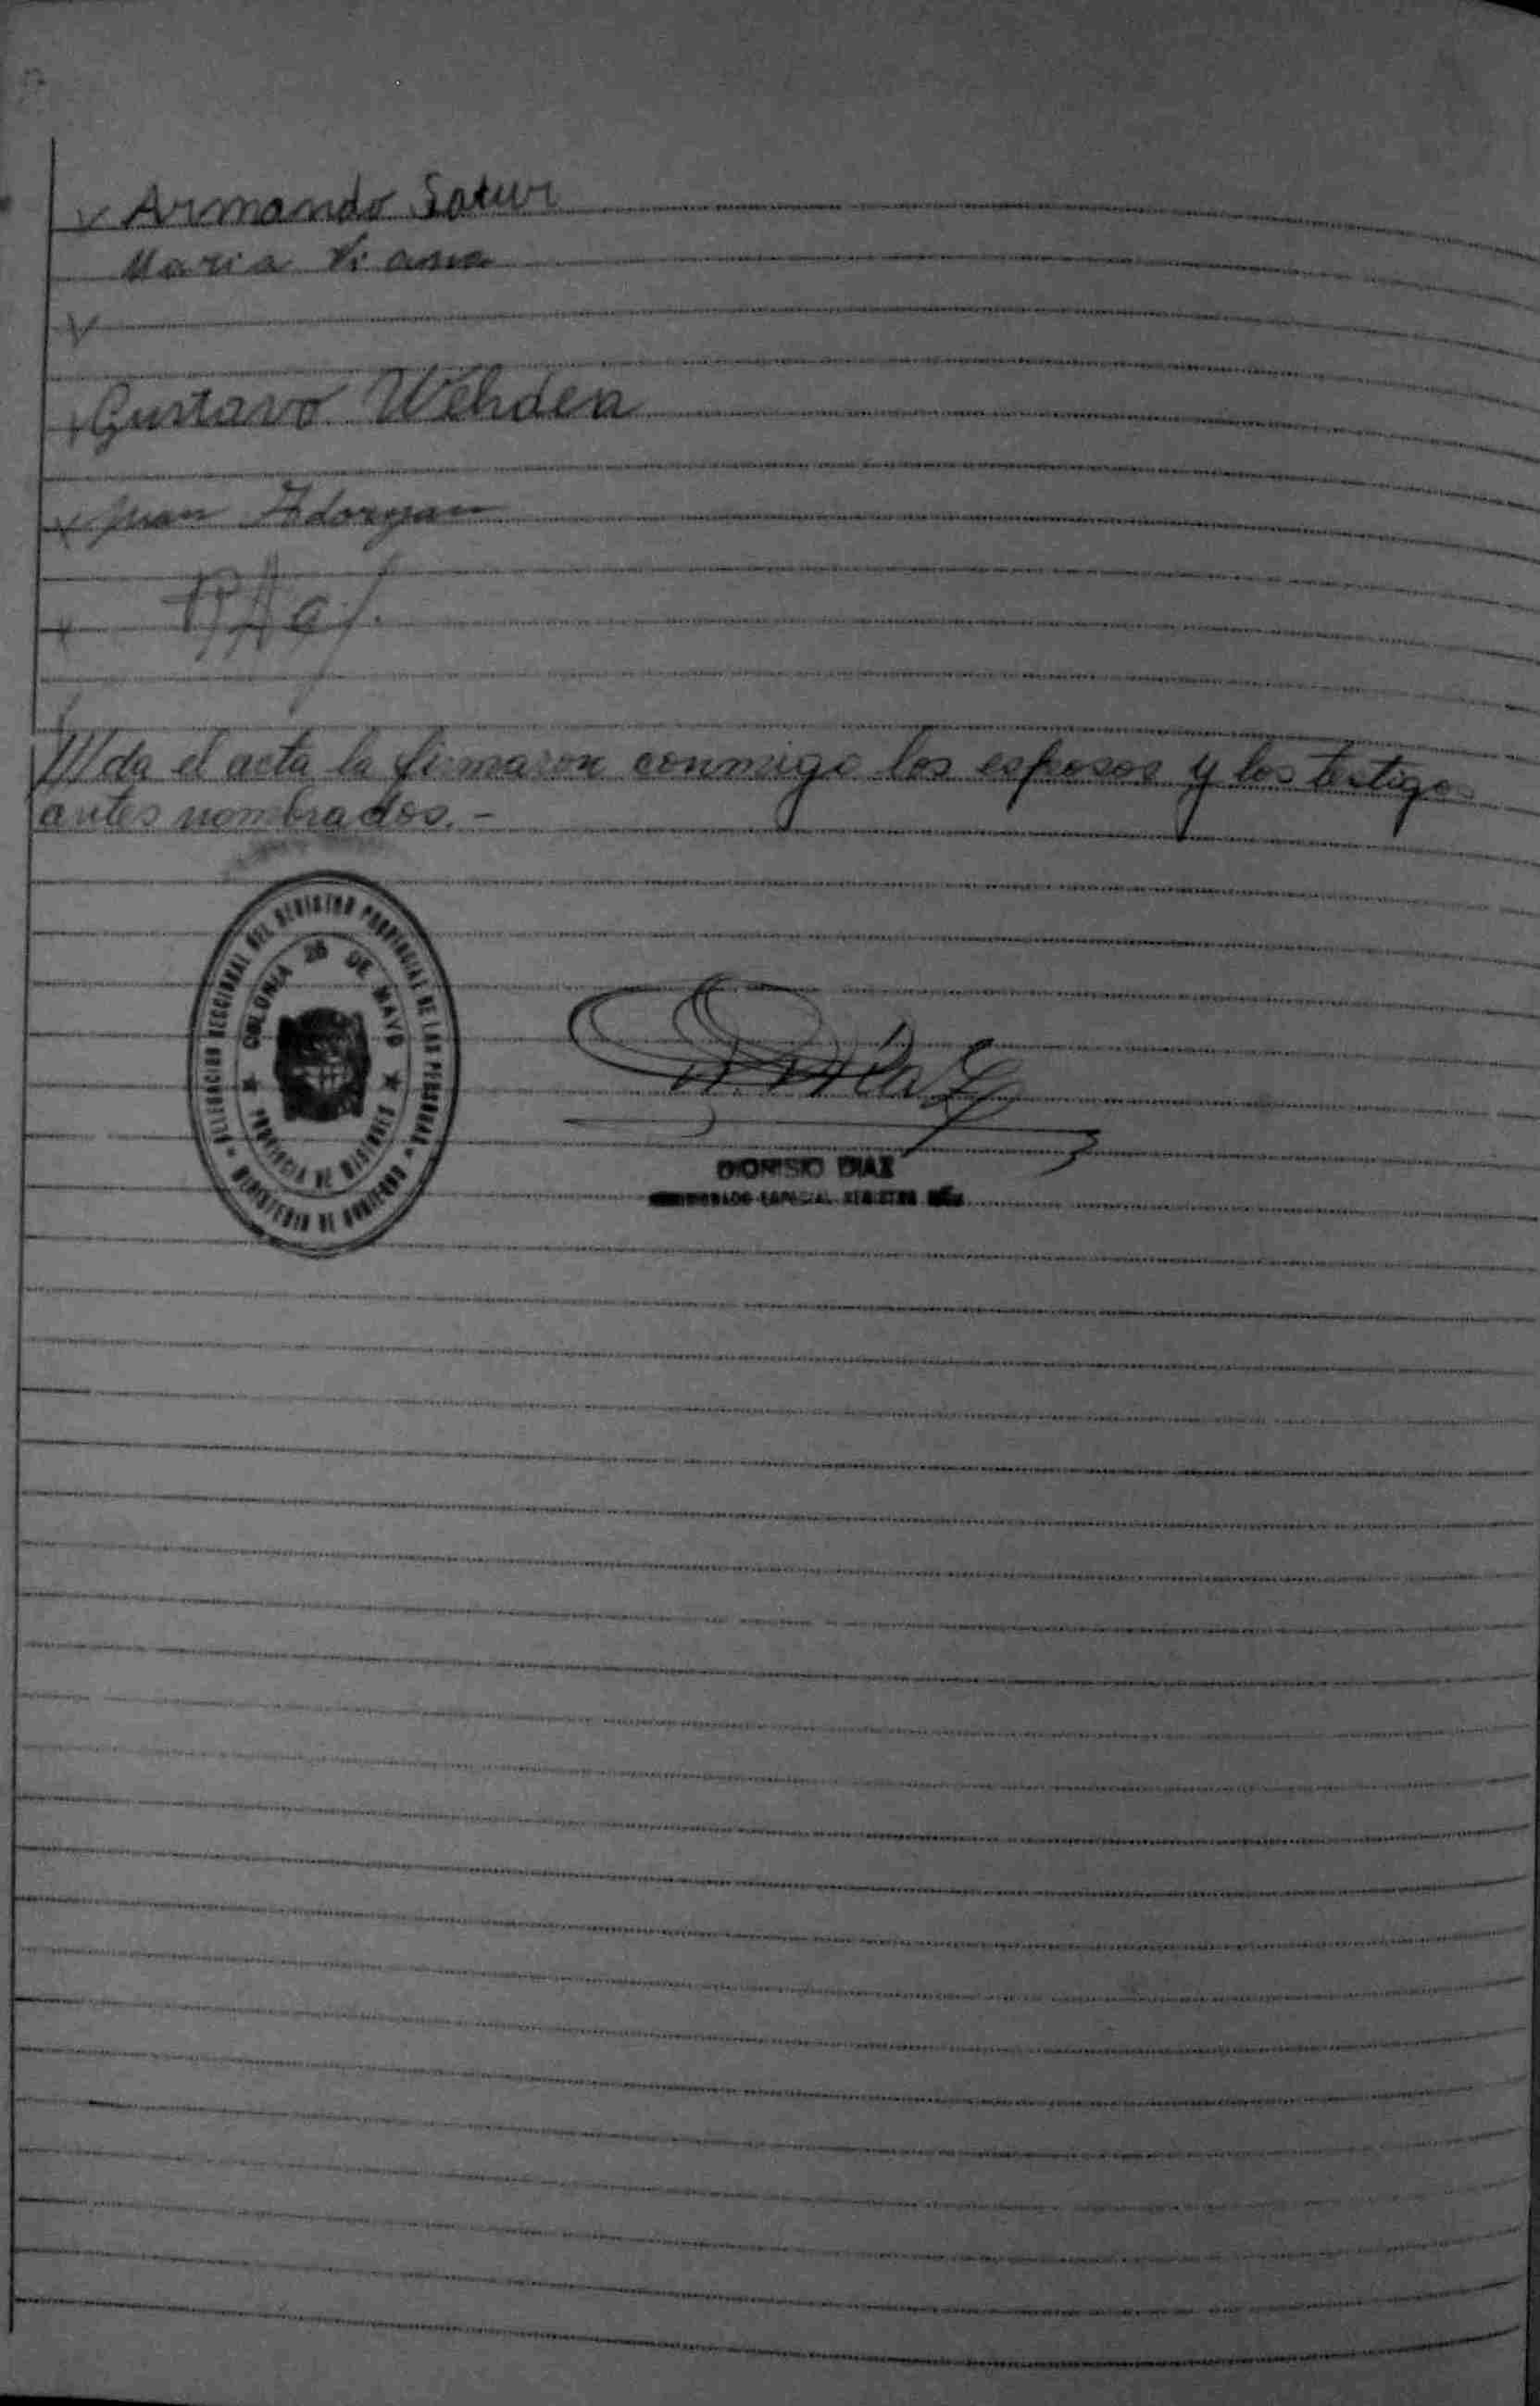 Armando Satur
Maria Viana
Gustavo Wehden
Juan Adoryan
el acta la firmaron conmigo los esposos y los testigos
antes nombrados.-
DELEGACION SECCIONAL DEL REGISTRO PROVINCIAL DE LAS PERSONAS
COLONIA 25 DE MAYO
PROVINCIA DE MISIONES
MINISTERIO DE GOBIERNO
D. Diaz
DIONISIO DIAZ
ESPECIAL REGISTRO